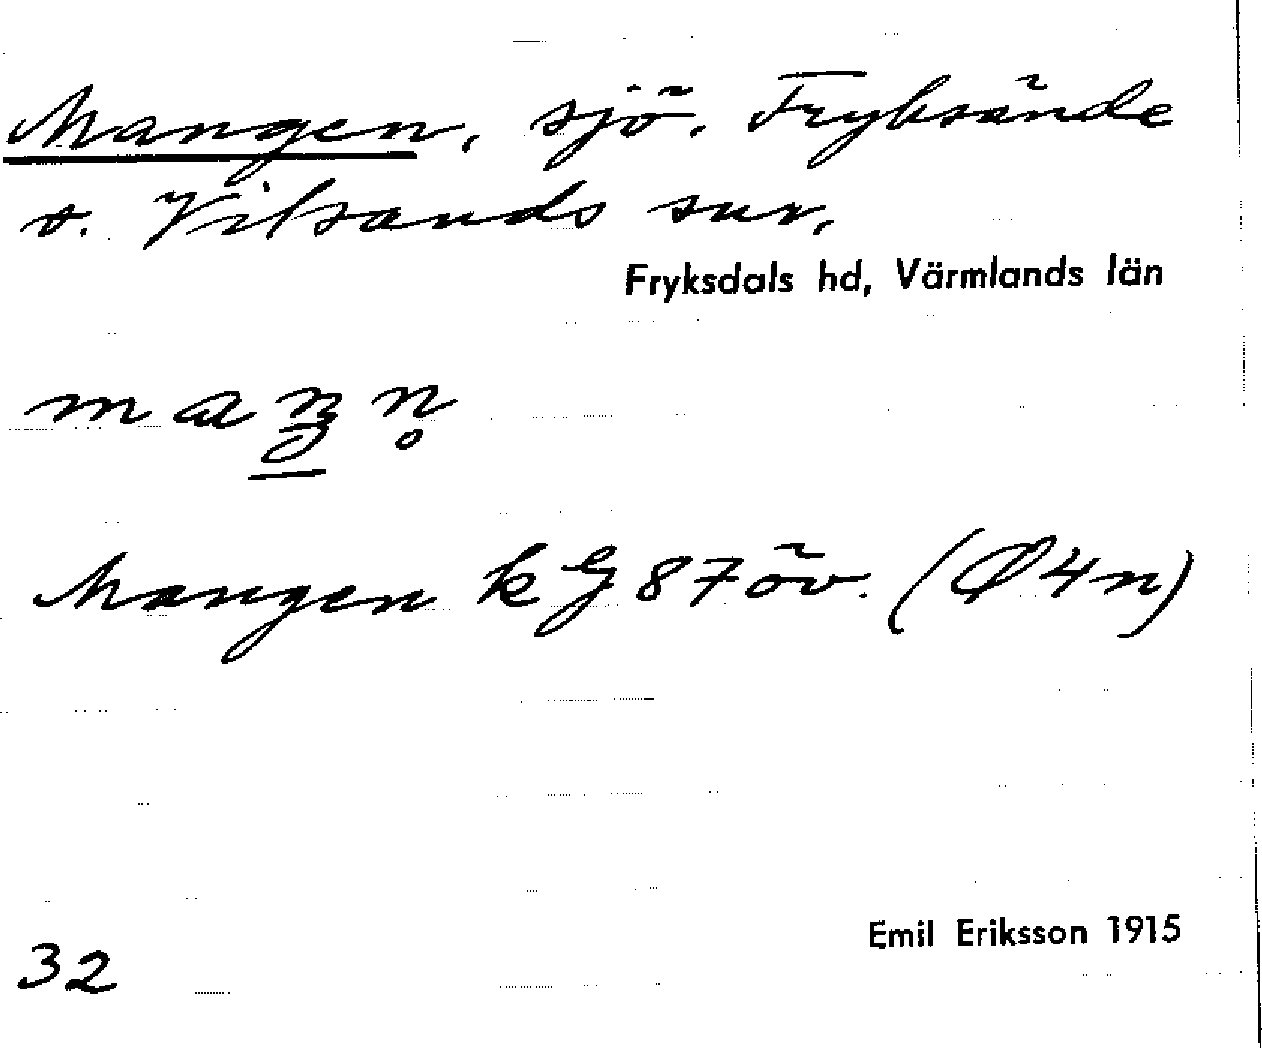 Mangen, sjö. Fryksände
o. Vitsands snr.
Fryksdals hd, Värmlands län
Mangen kG 87 öv. (Ø 4 n)
Emil Eriksson 1915
32